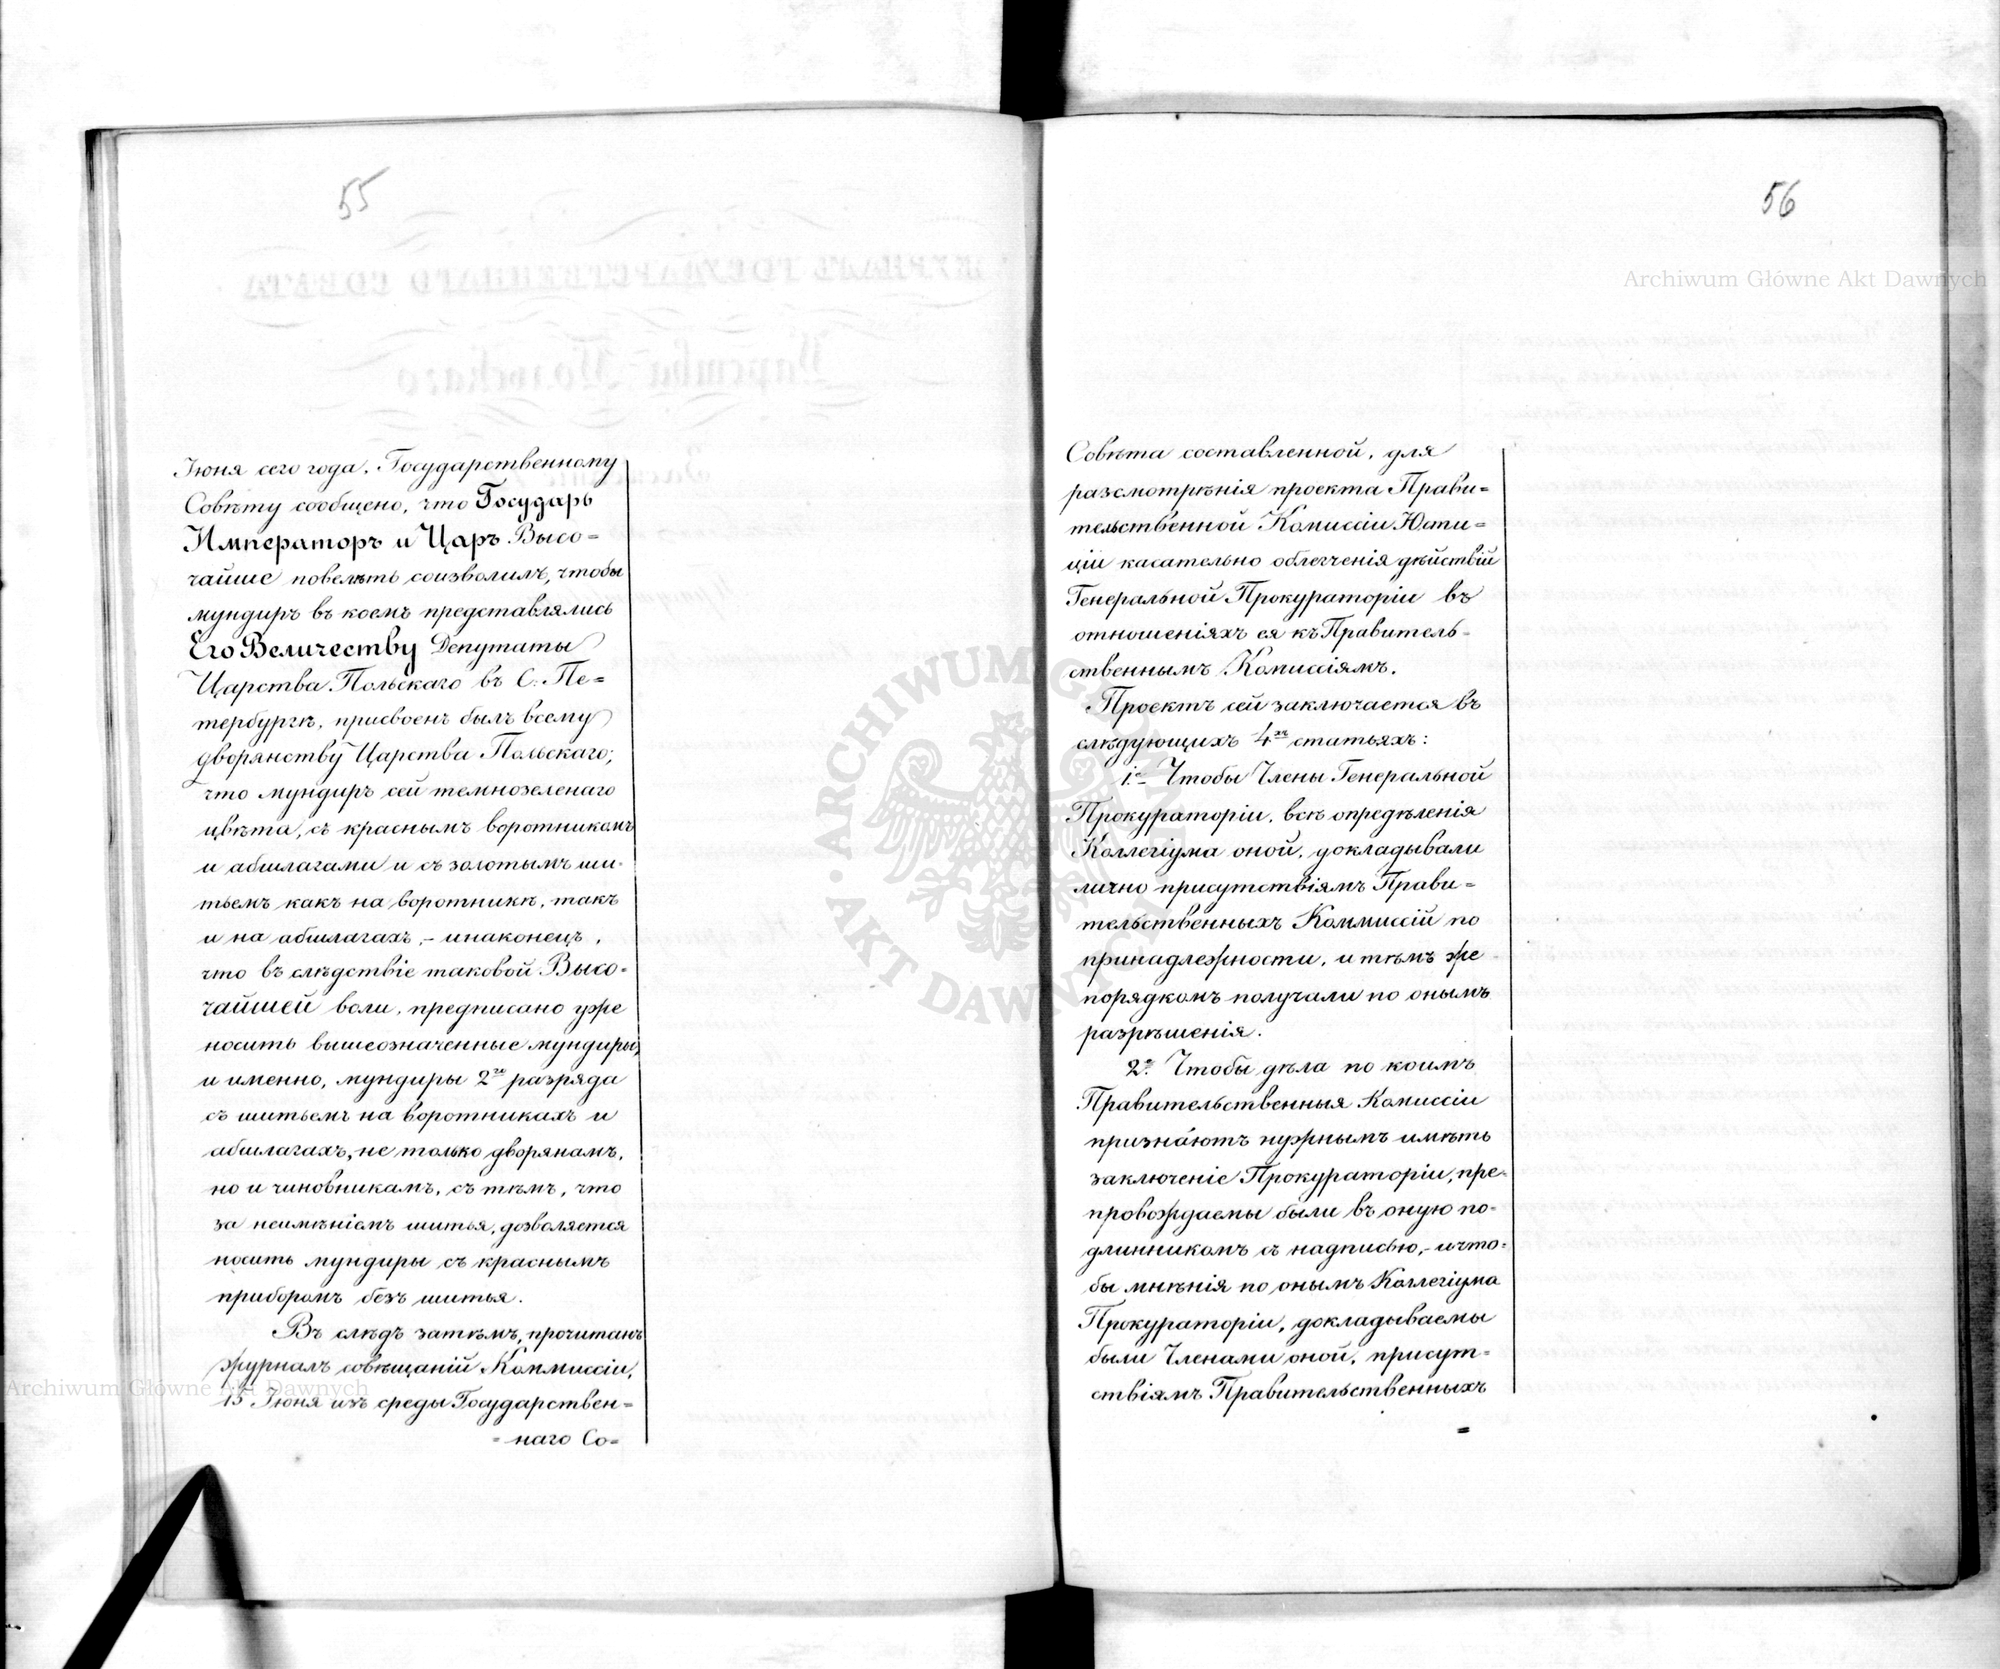 55
Іюня сего года, Государственному
Совѣту сообщено, что Государь
Императоръ и Царь Высо=
чайше повелѣть соизволилъ, чтобы
мундиръ въ коемъ представлялись
Его Величеству Депутаты
Царства Польскаго въ С. Пе=
тербургѣ, присвоенъ былъ всему
дворянству Царства Польскаго;
что мундиръ сей темнозеленаго
цвѣта, съ краснымъ воротникомъ
и абшлагами и съ золотымъ ши-
тьемъ какъ на воротникѣ, такъ
и на абшлагахъ, – инаконецъ,
что въ слѣдствіе таковой Высо-
чайшей воли, предписано уже
носить вышеозначенные мундиры,
и именно, мундиры 2го разряда
съ шитьемъ на воротникахъ и
абшлагахъ, не только дворянамъ,
но и чиновникамъ, съ тѣмъ, что
за неимѣніемъ шитья, дозволяется
носить мундиры съ краснымъ
приборомъ безъ шитья.
Въ слѣдъ затѣмъ, прочитанъ
журналъ совѣщаній Коммиссіи,
15 Іюня изъ среды Государствен=
=наго Со=
56
Совѣта составленной, для
разсмотрѣнія проекта Прави=
тельственной Комиссіи Юсти=
ціи касательно облегченія дѣйствій
Генеральной Прокураторіи въ
отношеніяхъ ея къ Правитель-
ственнымъ Комиссіямъ.
Проектъ сей заключается въ
слѣдующихъ 4хъ статьяхъ:
1е Чтобы Члены Генеральной
Прокураторіи, всѣ опредѣленія
Коллегіума оной, докладывали
лично присутствіямъ Прави=
тельственныхъ Коммиссій по
принадлежности, и тѣмъ же
порядкомъ получали по онымъ
разрѣшенія.
2е Чтобы дѣла по коимъ
Правительственныя Комиссіи
признаютъ нужнымъ имѣть
заключеніе Прокураторіи, пре-
провождаемы были въ оную по-
длинникомъ съ надписью, – ичто-
бы мнѣнія по онымъ Коллегіума
Прокураторіи, докладываемы
были Членами оной, присут=
ствіямъ Правительственныхъ
=
Archiwum Główne Akt Dawnych
Archiwum Główne Akt Dawnych